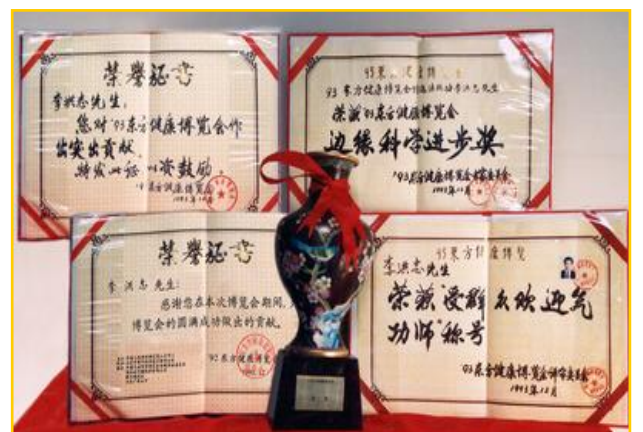 荣誉证书
李洪志先生:
您对'93东方健康博览会作
出突出贡献,
特发此证 以资鼓励。
'93东方健康博览会
1993年12月
93东方健康博览会
荣获'93东方健康博览会
边缘科学进步奖
'93东方健康博览会评审委员会
1993年12月
荣誉证书
李洪志先生:
感谢您在本次博览会期间,
博览会的圆满成功做出的贡献。
'92东方健康博览
93东方健康博览
李洪志先生
荣获"受群众欢迎气
功师"称号
93东方健康博览会评审委员会
1993年12月